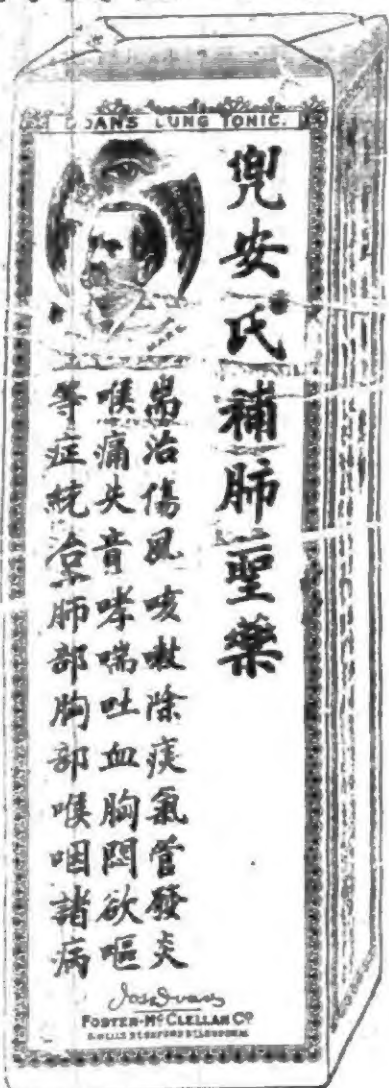 DOANS LUNG TONIC.
兜安氏補肺聖藥
耑治傷風咳嗽除痰氣管發炎
喉痛失音哮喘吐血胸悶欲嘔
等症統合肺部胸部喉咽諸病
FOSTER-McCLELLAN CO